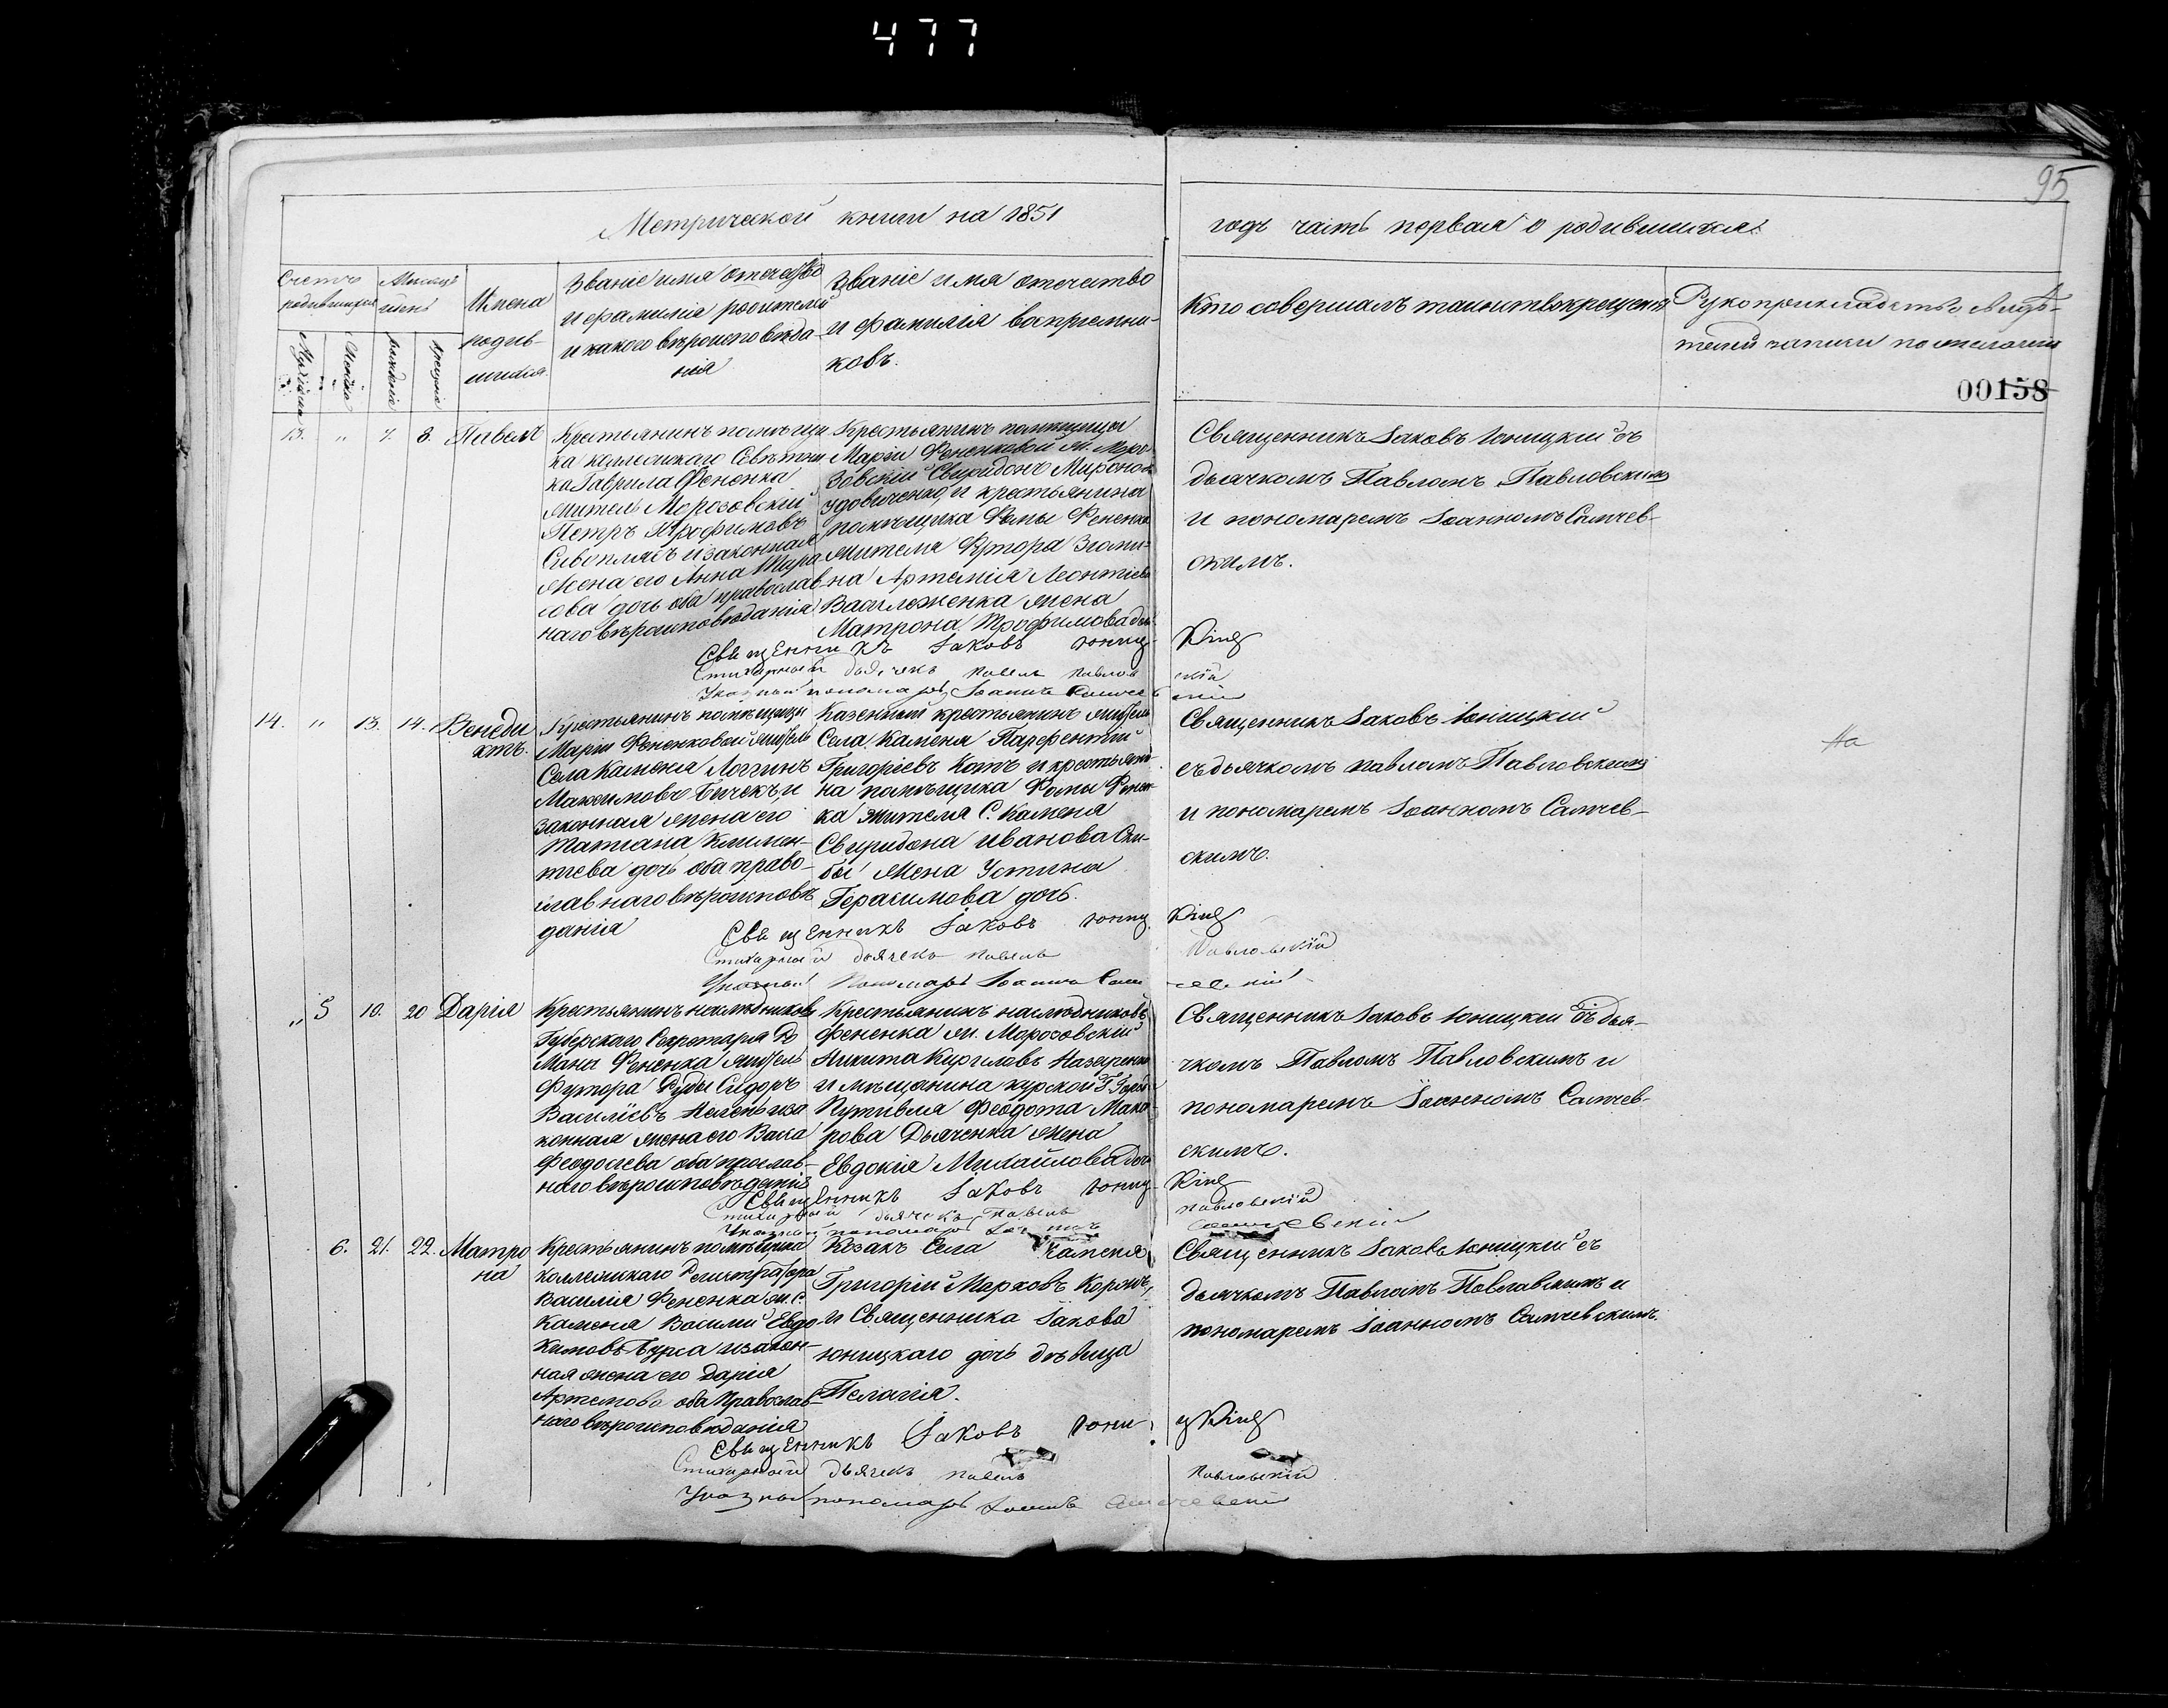 477
95
Метрической книги на 1851
годъ часть первая о родившихся
Счетъ родившихся
Месяцъ и день
Имена родив-
шихся.
Званіе имя отечество
и фамилія родителей
и какого вѣроисповѣда-
нія
Званіе имя отечество
и фамилія воспріемни-
ковъ.
Кто совершалъ таинство крещенія
Рукоприкладство свидѣ-
телей записи по желанію
00158
13. " 7. 8. Павелъ
Крестьянинъ помѣщи
ка коллежскаго Совѣтни
ка Гаврила Фененка
житель Морозовскій
Петръ Трофимовъ
и законная
жена его Анна Тара
сова дочь оба православ
наго вѣроисповѣданія
Крестьянинъ помѣщицы
Маріи Фененковой ж. Моро-
зовскій Свиридонъ Мироновъ
Удовиченко, и крестьянина
помѣщика Фомы Фененка
жителя Футора
на Артемія Леонтіева
Василженка жена
Матрона Трофимова дочь
Священникъ Іаковъ Юницкій съ
дьячкомъ Павломъ Павловскимъ
и пономаремъ Іоанномъ Самчев-
скимъ.
Священникъ Іаковъ Юницкій
Стихарный дьячекъ Павелъ Павловскій
Указный пономарь Іоаннъ Самчевскій
14. " 13. 14. Венеди
ктъ.
Крестьянинъ помѣщицы
Маріи Фененковой житель
Села Каменя Логгинъ
Максимовъ Бичекъ, и
законная жена его
Татіана Климен-
тіева дочь оба право-
славнаго вѣроисповѣ
данія
Казенный крестьянинъ житель
Села Каменя Парфентій
Григоріевъ Котъ и крестьяни-
на помѣщика Фомы Фенен-
ка жителя С. Каменя
Свиридона Иванова Ски-
бы жена Устина
Герасимова дочь.
Священникъ Іаковъ Юницкій
съ дьячкомъ Павломъ Павловскимъ
и пономаремъ Іоанномъ Самчев-
скимъ.
На
Священникъ Іаковъ Юницкій
Стихарный дьячекъ Павелъ Павловскій
Указный Пономарь Іоаннъ Самчевскій
" 5 10. 20 Дарія
Крестьянинъ наслѣдниковъ
Губерскаго Секретаря Ро
мана Фененка житель
Футора Руды Сидоръ
Василіевъ и за
конная жена его Васса
Феодосіева оба православ-
наго вѣроисповѣданія
Крестьянинъ наслѣдниковъ
Фененка ж. Морозовскій
Никита Кириловъ Назаренко
и мѣщанина курской Г. Города
Путивля Феодота Мака-
рова Дьяченка жена
Евдокія Михайлова дочь
Священникъ Іаковъ Юницкій съ дья-
чкомъ Павломъ Павловскимъ и
пономаремъ Іоанномъ Самчев-
скимъ.
Священникъ Іаковъ Юницкій
Стихарный дьячекъ Павелъ Павловскій
Указный пономарь Іоаннъ Самчевскій
6. 21. 22. Матро
на
Крестьянинъ помѣщика
Коллежскаго Регистратора
Василія Фененка ж. С.
Каменя Василий Евдо-
кимовъ Бурса и закон-
ная жена его Дарія
Артемова оба Православ-
наго вѣроисповѣданія
Козакъ Села Каменя
Григорій Марковъ Коржъ,
и Священника Іакова
Юницкаго дочь дѣвица
Пелагія.
Священникъ Іаковъ Юницкій съ
дьячкомъ Павломъ Павлавскимъ и
пономаремъ Іоанномъ Самчевскимъ.
Священникъ Іаковъ Юницкій
Стихарный дьячекъ Павелъ Павловскій
Указный пономарь Іоаннъ Самчевскій